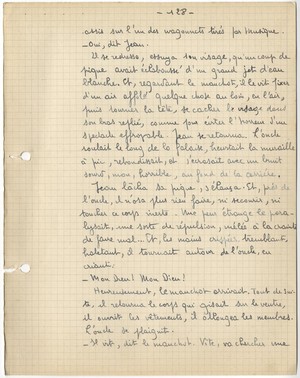 - 128 -
assis sur l'un des wagonnets tirés par Musique.
- Oui, dit Jean.
Il se redressa, essuya son visage, qu'un coup de
pique avait éclaboussé d'un grand jet d'eau
blanche. Et, regardant le manchot, il le vit fixer
d'un air affolé quelque chose au loin, en l'air,
puis tourner la tête, se cacher le visage dans
son bras replié, comme pour éviter l'horreur d'un
spectacle effroyable. Jean se retourna. L'oncle
roulait le long de la falaise, heurtait la muraille
à pic, rebondissait, et s'écrasait avec un bruit
sourd, mou, horrible, au fond de la carrière.
Jean lâcha sa pique, s'élança. Et, près de
l'oncle, il n'osa plus rien faire, ni secourir, ni
toucher ce corps inerte. Une peur étrange le para-
lysait, une sorte de répulsion, mêlée à la crainte
de faire mal. Et, les mains crispées, tremblant,
haletant, il tournait autour de l'oncle, en
criant:
- Mon Dieu! Mon Dieu!
Heureusement, le manchot arrivait. Tout de sui-
te, il retourna le corps qui gisait sur le ventre,
il ouvrit les vêtements, il allongea les membres.
L'oncle se plaignit.
- Il vit, dit le manchot. Vite, va chercher une